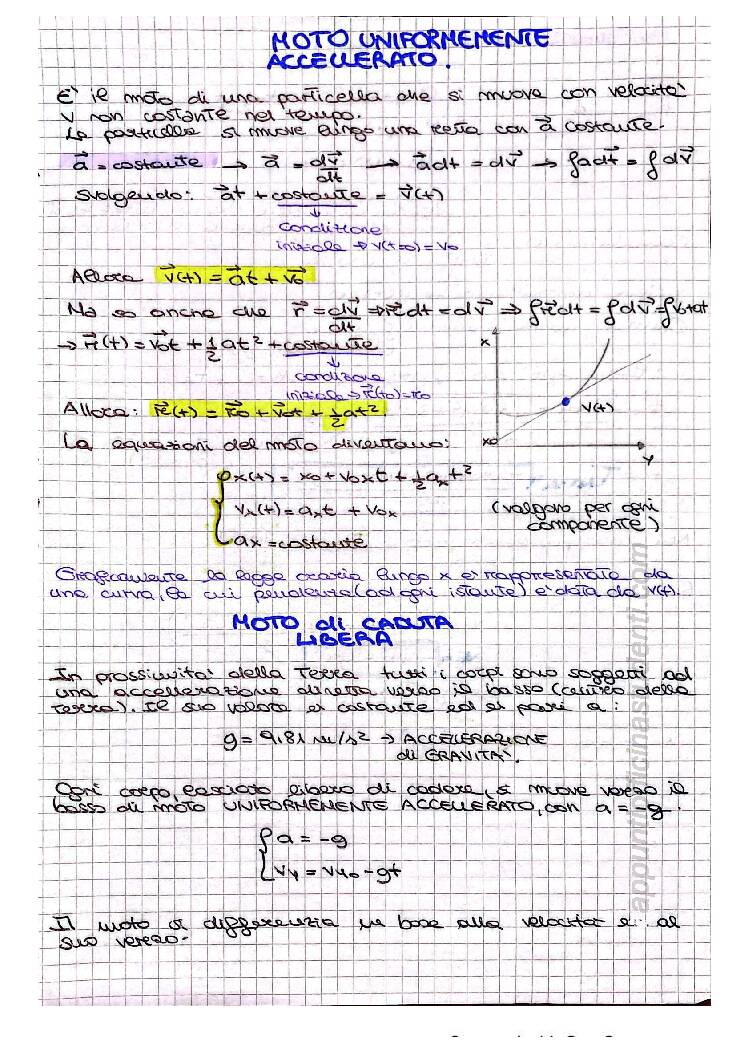 MOTO UNIFORMEMENTE
ACCELLERATO.
E' il moto di una particella che si muove con velocità
v non costante nel tempo.
La particella si muove lungo una retta con a⃗ costante.
a⃗ = costante → a⃗ = dv⃗/dt → a⃗dt = dv⃗ → ∫adt⃗ = ∫dv⃗
Svolgendo: a⃗t + costante = v⃗(t)
↓
condizione
iniziale ⇒ v(t=0) = v0
Allora v⃗(t) = a⃗t + v⃗0
Ma so anche che r⃗ = dv⃗/dt ⇒ r⃗dt = dv⃗ ⇒ ∫r⃗dt = ∫dv⃗ = ∫v0+at
→ r⃗(t) = v⃗0t + 1/2 at² + costante
↓
condizione
iniziale ⇒ r⃗(t0) = r0
Allora: r⃗(t) = r⃗0 + v⃗0t + 1/2 at²
x
v(t)
x0
y
La equazioni del moto diventano:
x(t) = x0 + v0x t + 1/2 ax t²
vx(t) = axt + v0x
ax = costante
(valgono per ogni
componente)
Graficamente la legge oraria lungo x è rappresentata da
una curva, la cui pendenza (ad ogni istante) è data da v(t).
MOTO di CADUTA
LIBERA
In prossimità della Terra tutti i corpi sono soggetti ad
una accellerazione diretta verso il basso (centro della
Terra). Il suo valore è costante ed è pari a:
g = 9.81 m/s² → ACCELLERAZIONE
di GRAVITA'.
Ogni corpo, lasciato libero di cadere, si muove verso il
basso di moto UNIFORMEMENTE ACCELLERATO, con a = -g.
a = -g
vy = vy0 - gt
Il moto si differenzia in base alla velocità e al
suo verso.
appuntiofficinastudenti.com